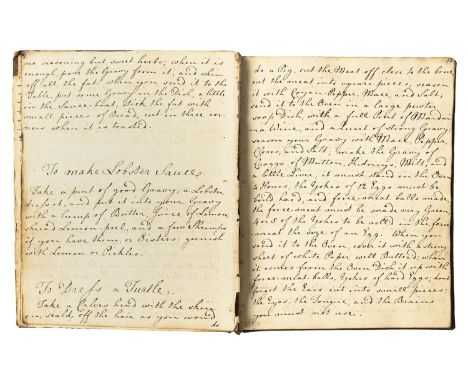 no seasoning but sweet herbs; when it is
enough, pour the Gravy from it, and skim
off all the fat, when you send it to the
Table, put some Gravy in the Dish, a little
in the Sauce-boat, stick the fat with
small pieces of Bread, cut in three cor-
ners when it is toasted.
To make Lobster Sauce.
Take a pint of good Gravy, a Lobster
dress it, and put it into your Gravy
with a Lump of Butter, Juice of Lemon
shred Lemon peel, and a few Shrimps
if you have them, or Oisters: garnish
with Lemon or Pickles.
To Dress a Turtle.
Take a Calves head with the skin
on, scald off the hair as you would
do
do a Pig, cut the Meat off close to the bone
cut the meat into square pieces, season
it with Cayan Pepper, Mace, and Salt,
send it to the Oven in a large pewter
soop Dish, with a full Pint of Mandai-
ra Wine, and a quart of strong Gravy:
season your Gravy with Mace, Pepper,
Cloves, and Salt, make the Gravy of
Craggs of Mutton, Kidneys, Milts, and
a little Liver, it must stand in the Oven
4 Hours, the Yokes of 12 Eggs must be
boild hard, and force-meat balls made
the force-meat must be made very Green
for 5 of the Yokes to be roll'd in the force
meat the size of an Egg. When you
send it to the Oven, cover it with a strong
sheet of white Paper well Butterd, when
it comes from the Oven Dish it up with
force-meat balls, Yokes of hard Eggs; not
forget the Ears cut into small pieces:
the Eyes, the Tongue, and the Brains
you must not use.